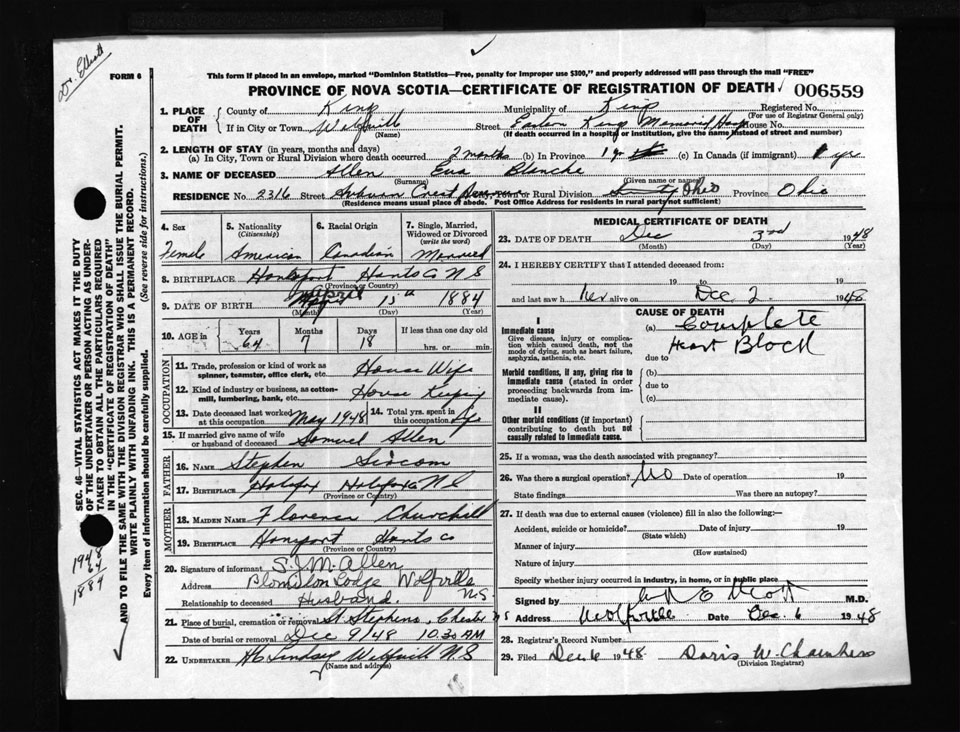 Dr. Elliott
FORM 6
This form if placed in an envelope, marked "Dominion Statistics—Free, penalty for improper use $300," and properly addressed will pass through the mail "FREE"
PROVINCE OF NOVA SCOTIA—CERTIFICATE OF REGISTRATION OF DEATH 006559
1. PLACE OF DEATH
County of Kings Municipality of Kings Registered No.
(For use of Registrar General only)
If in City or Town Wolfville Street Eastern Kings Memorial Hosp House No.
(Name) (If death occurred in a hospital or institution, give the name instead of street and number)
2. LENGTH OF STAY (in years, months and days)
(a) In City, Town or Rural Division where death occurred 2 months (b) In Province 1 yr (c) In Canada (if immigrant) 1 yr
3. NAME OF DECEASED Allen Eva Blanche
(Surname) (Given name or names)
RESIDENCE No. 2316 Street or Rural Division Ohio Province Ohio
(Residence means usual place of abode. Post Office Address for residents in rural parts not sufficient)
4. Sex Female
5. Nationality (Citizenship) American
6. Racial Origin Canadian
7. Single, Married, Widowed or Divorced (write the word) Married
8. BIRTHPLACE Hantsport Hants Co N S
(Province or Country)
9. DATE OF BIRTH April 15th 1884
(Month) (Day) (Year)
10. AGE in Years 64 Months 7 Days 18 If less than one day old hrs. or min.
OCCUPATION
11. Trade, profession or kind of work as spinner, teamster, office clerk, etc. House Wife
12. Kind of industry or business, as cotton-mill, lumbering, bank, etc. House Keeping
13. Date deceased last worked at this occupation May 1948 14. Total yrs. spent in this occupation
15. If married give name of wife or husband of deceased Samuel Allen
FATHER
16. NAME Stephen Slocom
17. BIRTHPLACE Halifax Halifax Co N S
(Province or Country)
MOTHER
18. MAIDEN NAME Florence Churchill
19. BIRTHPLACE Hantsport Hants Co
(Province or Country)
20. Signature of informant S. J. M. Allen
Address Blomidon Lodge Wolfville N.S.
Relationship to deceased Husband.
21. Place of burial, cremation or removal St. Stephens, Chester N S
Date of burial or removal Dec 9/48 10.30 AM
22. UNDERTAKER H C Lindsay Wolfville N.S
(Name and address)
MEDICAL CERTIFICATE OF DEATH
23. DATE OF DEATH Dec 3rd 1948
(Month) (Day) (Year)
24. I HEREBY CERTIFY that I attended deceased from:
19 to 19
and last saw her alive on Dec. 2 1948
CAUSE OF DEATH
I
Immediate cause
Give disease, injury or complication which caused death, not the mode of dying, such as heart failure, asphyxia, asthenia, etc.
(a) Complete Heart Block
due to
Morbid conditions, if any, giving rise to immediate cause (stated in order proceeding backwards from immediate cause).
(b)
due to
(c)
II
Other morbid conditions (if important) contributing to death but not causally related to immediate cause.
25. If a woman, was the death associated with pregnancy?
26. Was there a surgical operation? No Date of operation 19
State findings Was there an autopsy?
27. If death was due to external causes (violence) fill in also the following:—
Accident, suicide or homicide? Date of injury 19
(State which)
Manner of injury
(How sustained)
Nature of injury
Specify whether injury occurred in industry, in home, or in public place
Signed by M.D.
Address Wolfville Date Dec 6 1948
28. Registrar's Record Number
29. Filed Dec 6 1948. Doris W. Chambers
(Division Registrar)
SEC. 46—VITAL STATISTICS ACT MAKES IT THE DUTY OF THE UNDERTAKER OR PERSON ACTING AS UNDERTAKER TO OBTAIN ALL THE PARTICULARS REQUIRED IN THE "CERTIFICATE OF REGISTRATION OF DEATH" AND TO FILE THE SAME WITH THE DIVISION REGISTRAR WHO SHALL ISSUE THE BURIAL PERMIT.
WRITE PLAINLY WITH UNFADING INK. THIS IS A PERMANENT RECORD.
Every item of information should be carefully supplied. (See reverse side for instructions.)
1948
64
1884